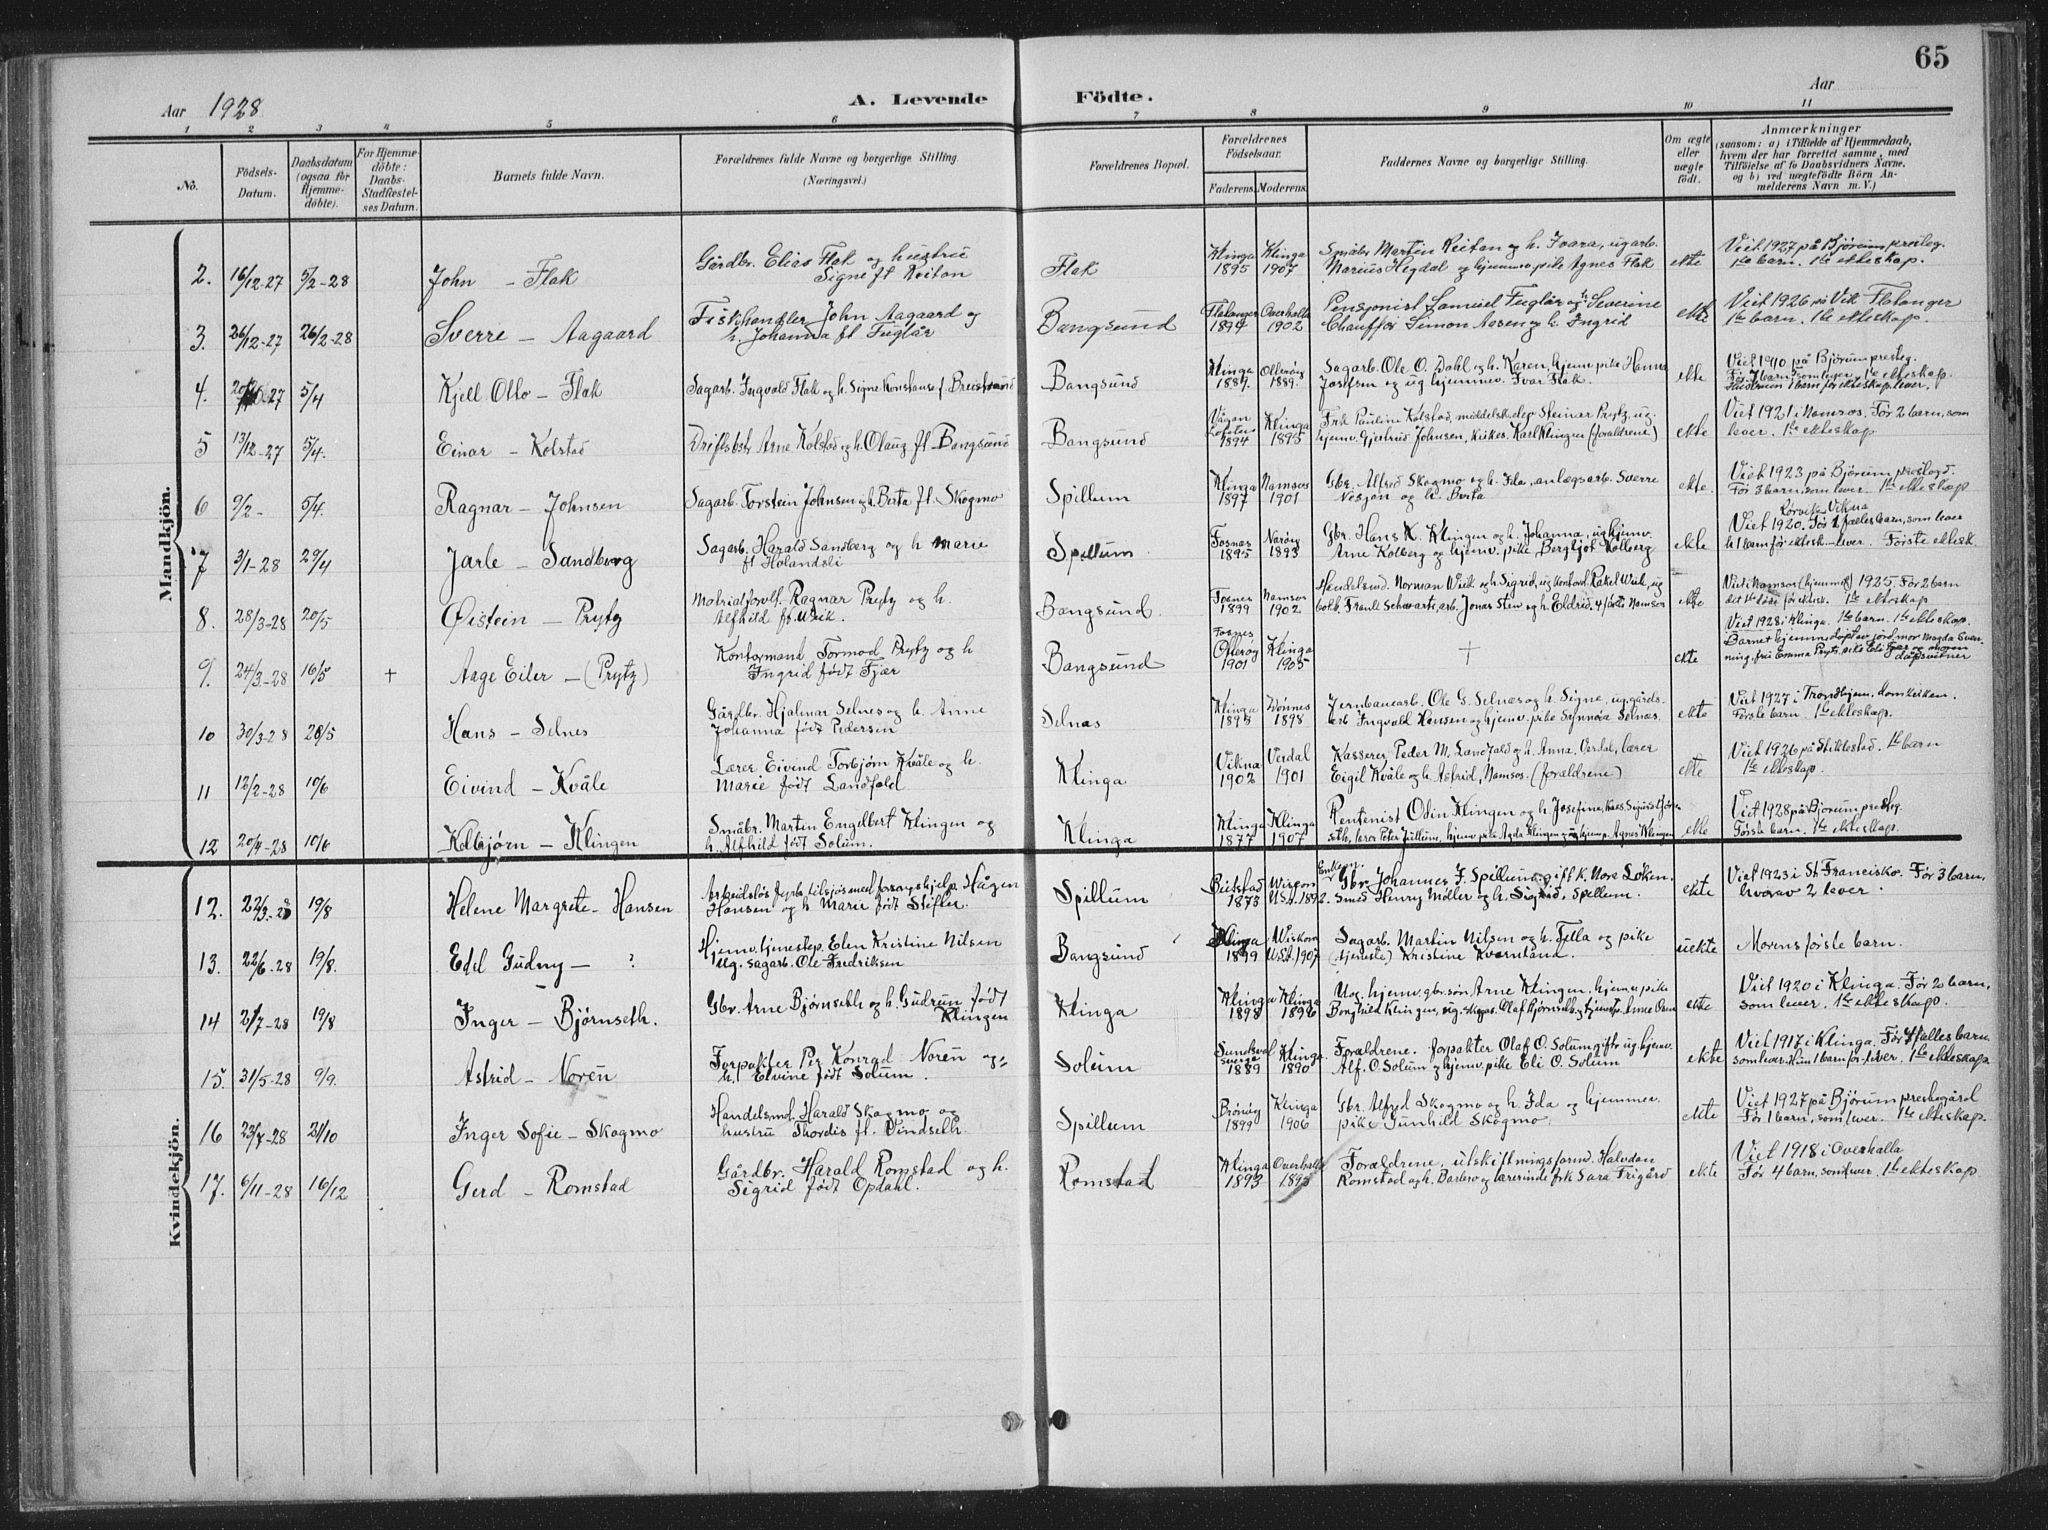 65
Aar 1928
A. Levende Födte.
Aar
1 2 3 4 5 6 7 8 9 10 11
No.
Födsels-Datum.
Daabsdatum (ogsaa for Hjemmedöbte).
For Hjemmedöbte: Daabs-Stadfæstelses Datum.
Barnets fulde Navn.
Forældrenes fulde Navne og borgerlige Stilling.
(Næringsvei.)
Forældrenes Bopæl.
Forældrenes Födselsaar.
Faderens. Moderens.
Faddernes Navne og borgerlige Stilling.
Om ægte eller uægte født.
Anmærkninger
(saasom: a) i Tilfælde af Hjemmedaab, hvem der har forrettet samme, med Tilföielse af to Daabsvidners Navne. og b) ved uægtefödte Börn Anmelderens Navn m. V.)
Mandkjön.
2. 16/12-27 5/2-28 John - Flak Gårdbr. Elias Flak og hustru Signe f. Reitan Flak Klinga 1895 Klinga 1907 Småbr. Martin Reitan og h. Ivara, ug arb. Marius Hegdal og hjemmev. pike Agnes Flak ekte Viet 1927 på Bjørum presteg. 1ste barn. 1ste ekteskap.
3. 26/12-27 26/2-28 Sverre - Aagaard Fiskehandler John Aagaard og h. Johanna f. Fuglår Bangsund Flatanger 1894 Overhalla 1902 Pensjonist Samuel Fuglår og h. Severine Chauffør Simon Aasen og h. Ingrid ekte Viet 1926 på Vik. Flatanger 1ste barn. 1ste ekteskap.
4. 27 5/4 Kjell Otto - Flak Sagarb. Ingvald Flak og h. Signe Konstanse f. Breistrand Bangsund Klinga 1889. Otterøy 1889. Sagarb. Ole O. Dahl og h. Karen, hjemv. pike Hanna Josefsen og ug hjemmev. Ivar Flak. ekte Viet 1910 på Bjørum presteg. Før 7 barn, som lever. 1ste ekteskap. Hustruen 1 barn før ekteskap, lever.
5 13/12-27 5/4. Einar - Kolstad Driftsbest. Arne Kolstad og h. Olaug f. Bangsund Bangsund Vågan Lofoten 1894 Klinga 1895 Frk Pauline Kolstad, middelsk. dep Steinar Prytz, ug. hjemv. Gjertrud Johnsen, kirkes. Karl Klingen (foreldrene) ekte Viet 1921 i Namsos. Før 2 barn, som lever. 1ste ekteskap.
6 9/2- 5/4. Ragnar - Johnsen Sagarb. Torstein Johnsen og h. Berta f. Skogmo Spillum Klinga 1897 Namsos 1901 Gbr. Alfred Skogmo og h. Ida, anlegsarb. Sverre Vesjøn og h. Berta ekte. Viet 1923 på Bjørum prestegd. Før 3 barn, som lever. 1ste ekteskap
7 3/1-28 29/4 Jarle - Sandberg Sagarb. Harald Sandberg og h Marie f. Hølandsli Spillum Fosnes 1895 Nærøy 1893 Gbr. Hans K. Klingen og h. Johanna, ug hjemv. Arne Kolberg og hjemv. pike Bergljot Kolberg ekte Rørvik Vikna Viet 1920. Før 1 felles barn, som lever h 1 barn før ektesk. - lever. Første ektesk
8. 28/3-28 20/5 Øistein - Prytz Ragnar Prytz og h. Alfhild f. Wiik. Bangsund Fosnes 1899 Namsos 1902 Handelsmd. Norman Wiik og h Sigrid, ug Rakel Wiik, ug arb. Jonas Sten og h. Eldrid Namsos ekte Viet i Namsos (hjemme) 1925. Før 2 barn 1ste ekteskap
9. 24/3-28 16/5 + Aage Eiler - (Prytz) Kontormand Tormod Prytz og h Ingrid født Fjær Bangsund Fosnes Otterøy 1901 Klinga 1905 + ekte Viet 1928 i Klinga. 1ste barn. 1ste ekteskap. Barnet hjemmedøpt av jordmor Magda Svenning, fru Emma Prytz, pike Eli Fjær og moren dåpsvitner
10 30/3-28 28/5 Hans - Selnes Gårdbr. Hjalmar Selnes og h. Anne Johanna født Pedersen Selnas Klinga 1895 Wønnes 1898 Jernbanearb. Ole G. Selnæs og h. Signe, ug. gårdsarb Ingvald Hansen og hjemv. pike Synnøva Selnæs. ekte Viet 1927 i Trondhjem. domkirken. Første barn. 1ste ekteskap.
11 12/2-28 10/6 Eivind - Kvåle Lærer Eivind Torbjørn Kvåle og h. Marie født Landfald Klinga Vikna 1902 Verdal 1901 Kasserer Peder M. Landfald og h. Anna, Verdal, lærer Eigil Kvåle og h. Astrid, Namsos. (foreldrene) ekte Viet 1926 på Stiklestad. 1ste barn 1ste ekteskap.
12 20/4-28 10/6 Kolbjørn - Klingen Småbr. Martin Engelbert Klingen og h. Alfhild født Solum. Klinga Klinga 1877 Klinga 1907 Rentenist Odin Klingen og h. Josefine, hjemv. pike Agda Klingen Agnes Klingen ekte Viet 1928 på Bjørum presteg. Første barn. 1ste ekteskap.
Kvindekjön.
12. 22/3-28 19/8 Helene Margrete - Hansen Arbeidsløs fyrb. tilsjøs med forsorgshjelp Hågen Hansen og h Marie født Stifler. Spillum Beitstad 1873 Wiscon. U.S.A. 1892. Enkem. Gbr. Johannes J. Spillum, gift k. Nora Løken. Smed Henry Møller og h. Sigrid, Spellum. ekte Viet 1923 i St Francisko. Før 3 barn, hvorav 2 lever.
13. 22/6-28 19/8. Edel Gudny - ? Hjemv. tjenestep. Elen Kristine Nilsen Ug. sagarb. Ole Fredriksen Bangsund Klinga 1899 Wiskon U.S.A. 1907 Sagarb. Martin Nilsen og h. Tella og pike (tjeneste) Kristine Kvernland. uekte Morens første barn.
14 2/7-28 19/8 Inger - Bjørnseth. Gbr. Arne Bjørnseth og h. Gudrun født Klingen Klinga Klinga 1898 Klinga 1896 Ug. hjemv. gbr. søn, Arne Klingen, hjemv. pike Borghild Klingen, ug. skogsarb. Olaf Bjørnseth, og tjenestep. Anne ekte Viet 1920 i Klinga. Før 2 barn, som lever. 1ste ekteskap.
15. 31/5-28 9/9. Astrid - Norén Forpakter Per Konrad Norén og h. Elvine født Solum. Solum Sundsval Sverige 1889 Klinga 1890 Foreldrene. Forpakter Olaf O. Solum gift ug hjemv. Alf. O. Solum og hjemv. pike Eli O. Solum ekte Viet 1917 i Klinga. Før 4 felles barn. som lever. Hun 1 barn før - lever. 1ste ekteskap.
16 23/7-28 21/10 Inger Sofie - Skogmo Handelsmd. Harald Skogmo og hustru Thordis f. Vindseth. Spillum Brønøy 1899 Klinga 1906 Gbr. Alfred Skogmo og h. Ida og hjemmev. pike Gunhild Skogmo. ekte Viet 1927 på Bjørum prestegård Før 1 barn, som lever. 1ste ekteskap.
17. 6/11-28 16/12 Gerd - Romstad Gårdbr. Harald Romstad og h. Sigrid født Opdahl. Romstad Klinga 1893 Overhalla 1893 Foreldrene, utskiftningsformd. Halvdan Romstad og h. Barbro og lærerinde frk Sara Frigård ekte Viet 1918 i Overhalla Før 4 barn, som lever. 1ste ekteskap